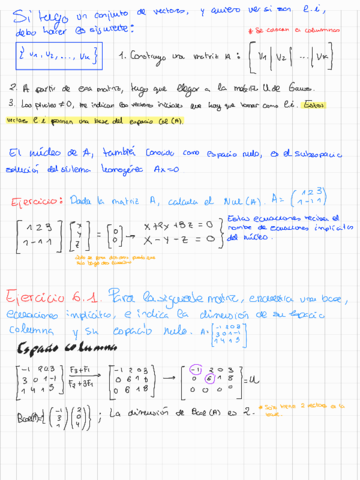 Si tengo un conjunto de vectores, y quiero ver si son l.i.,
debo hacer lo siguiente:
* Se colocan en columnas
{v₁, v₂, ..., vₙ}
1. Construyo una matriz A: [v₁ | v₂ | ... | vₙ]
2. A partir de esa matriz, tengo que llegar a la matriz U de Gauss.
3. Los pivotes ≠0, me indican los vectores iniciales que hay que tomar como l.i. Estos
vectores l.i forman una base del espacio Col(A).
El núcleo de A, también conocido como espacio nulo, es el subespacio
solución del sistema homogéneo Ax=0
Ejercicio: Dada la matriz A, calcula el Nul(A). A = (1 2 3
1 -1 1)
[1 2 3
1 -1 -1] [x
y
z] = [0
0]
x - y - z = 0
Estas ecuaciones reciben el
nombre de ecuaciones implícitas
del núcleo.
Ejercicio 6.1. Para la siguiente matriz, encuentra una base,
ecuaciones implícitas, e indica la dimensión de su espacio
columna y su espacio nulo. A=
Espacio columna
[-1 2 0 3
3 0 1 -1
1 4 1 5] F₂+F₁
F₃+3F₁ → [-1 2 0 3
0 6 1 8
0 6 1 8] → [-1 2 0 3
0 6 1 8
0 0 0 0] = U
{(-1
3
1) (2
0
4)} ; La dimensión de Col(A) es 2.